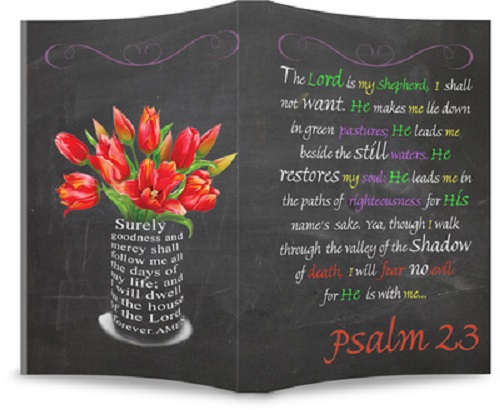 Surely
goodness and
mercy shall
follow me all
the days of
my life; and
I will dwell
in the house
of the Lord
forever.
The Lord is my shepherd, I shall
not want. He makes me lie down
in green pastures; He leads me
beside the still waters. He
restores my soul: He leads me in
the paths of righteousness for His
name's sake. Yea, though I walk
through the valley of the Shadow
of death, I will fear no evil:
for He is with me...
Psalm 23